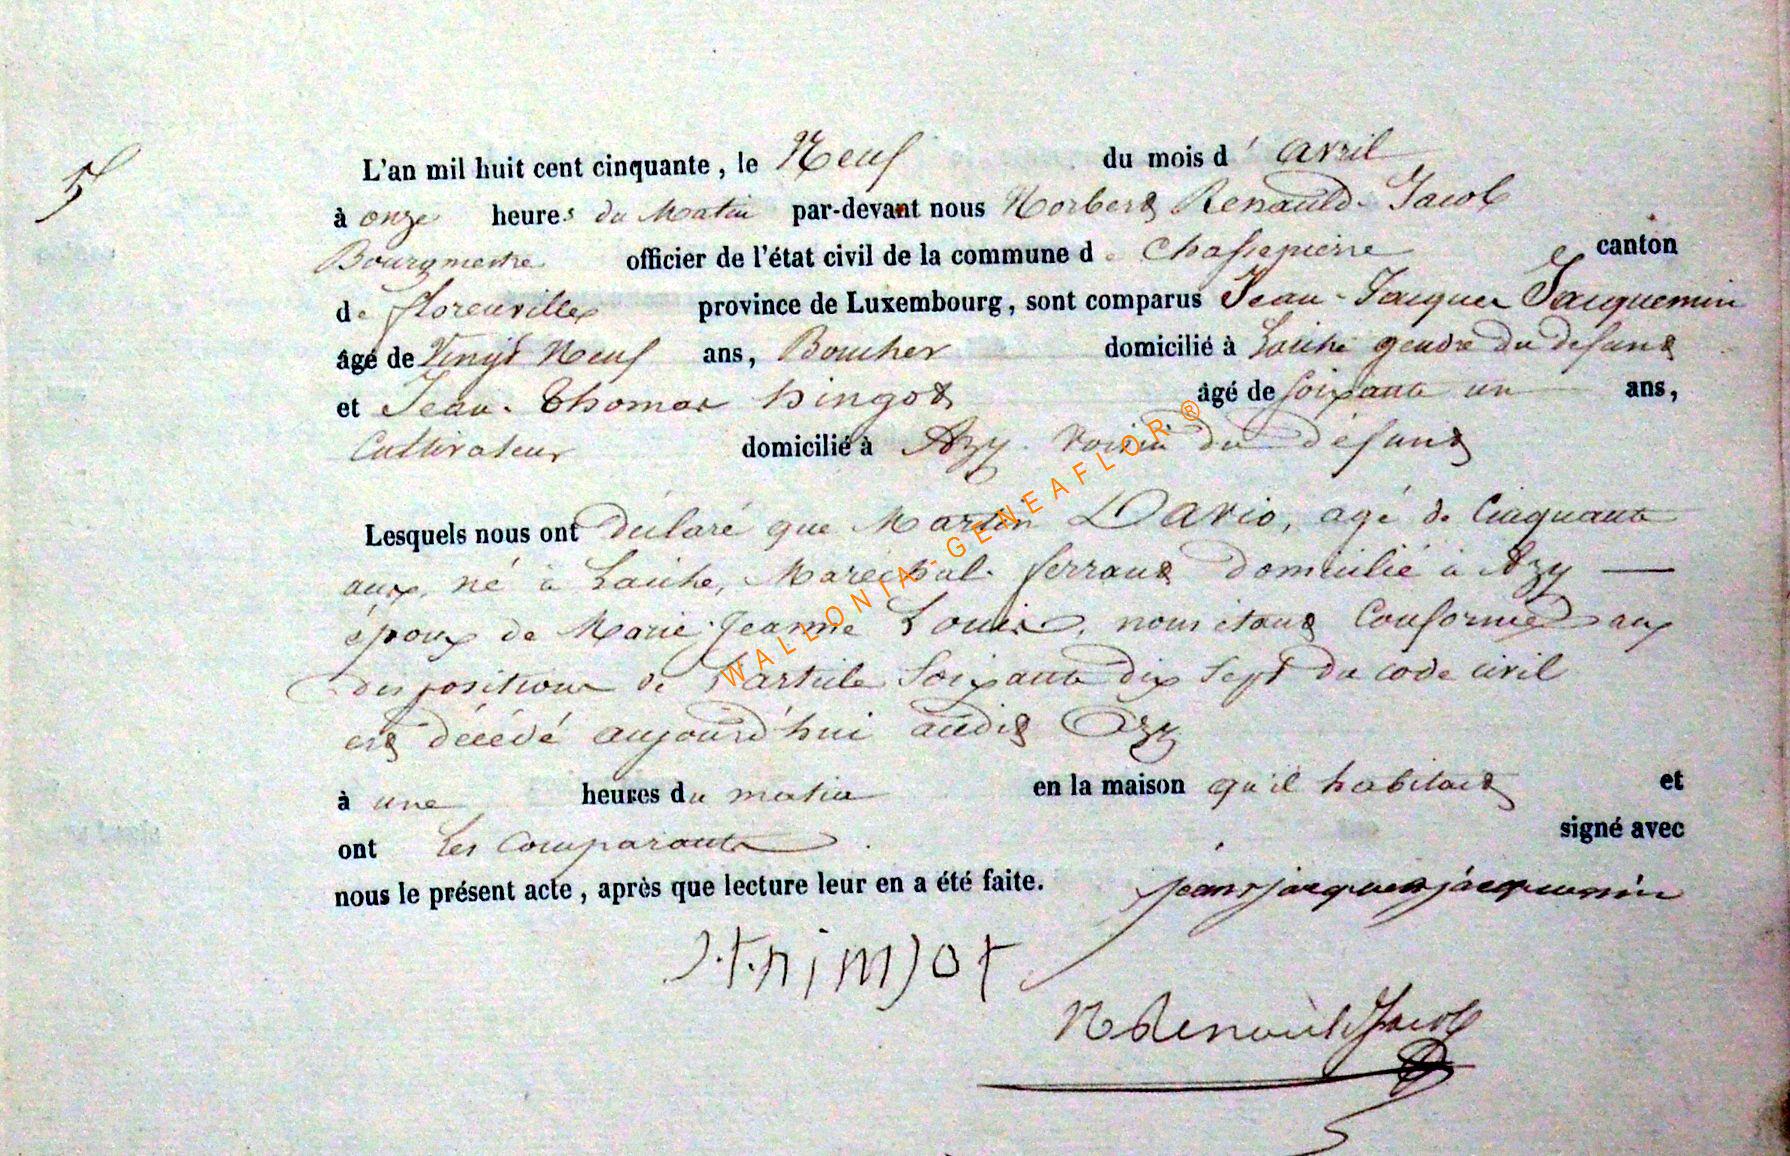 5
L'an mil huit cent cinquante, le Neuf du mois d'avril
à onze heures du Matin par-devant nous Norbert Renauld-Jacob
Bourgmestre officier de l'état civil de la commune de Chassepierre canton
de florenville province de Luxembourg, sont comparus Jean-Jacques Jacquemin
âgé de Vingt Neuf ans, Boucher domicilié à Laiche gendre du defunt
et Jean-Thomas hingot âgé de soixante un ans,
Cultivateur domicilié à Azy voisin du défunt
Lesquels nous ont déclaré que Martin Dario, agé de Cinquante
ans, né à Laiche, Maréchal-ferrant domicilié à Azy
époux de Marie-Jeanne Louis, nous étant Conformé aux
dispositions de l'article soixante dix sept du code civil
est décédé aujourd'hui audit Azy
à une heures du matin en la maison qu'il habitait et
ont les Comparants signé avec
nous le présent acte, après que lecture leur en a été faite.
jean jacques jacquemin
N Renauld Jacob
WALLONIA-GENEAFLOR®